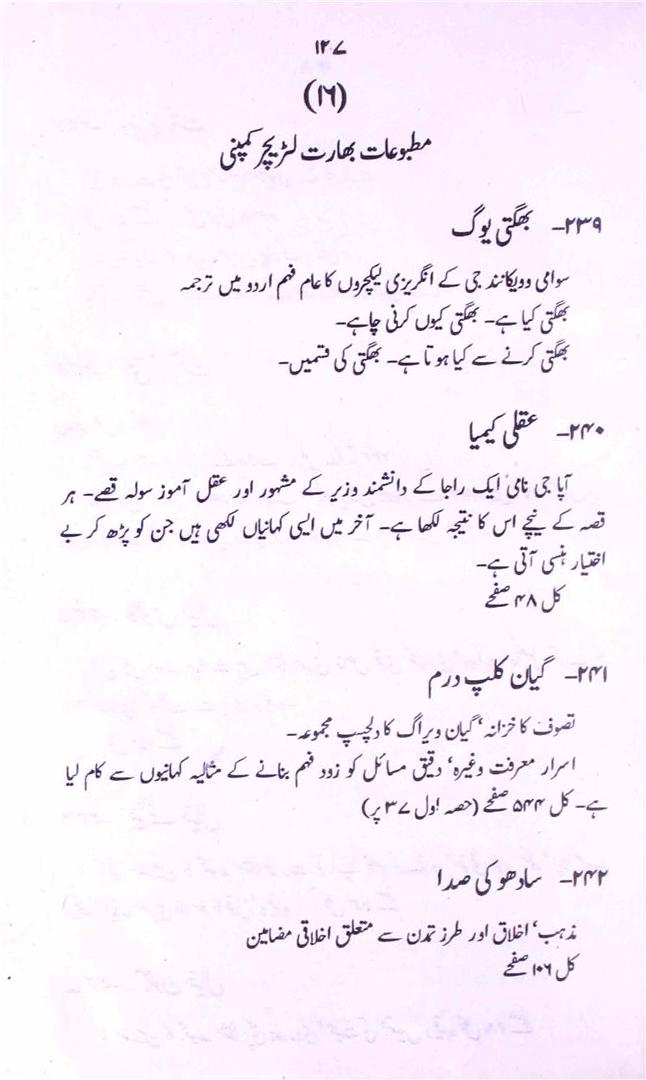 ۱۲۷
(۱۶)
مطبوعات بھارت لٹریچر کمپنی
۲۳۹- بھگتی یوگ
سوامی وویکانند جی کے انگریزی لیکچروں کا عام فہم اردو میں ترجمہ
بھگتی کیا ہے- بھگتی کیوں کرنی چاہے-
بھگتی کرنے سے کیا ہوتا ہے- بھگتی کی قسمیں-
۲۴۰- عقلی کیمیا
آپا جی نامی ایک راجا کے دانشمند وزیر کے مشہور اور عقل آموز سولہ قصے- ہر
قصہ کے نیچے اس کا نتیجہ لکھا ہے- آخر میں ایسی کہانیاں لکھی ہیں جن کو پڑھ کر بے
اختیار ہنسی آتی ہے-
کل ۴۸ صفحے
۲۴۱- گیان کلپ درم
تصوف کا خزانہ‘ گیان ویراگ کا دلچسپ مجموعہ-
اسرار معرفت وغیرہ‘ دقیق مسائل کو زود فہم بنانے کے مثالیہ کہانیوں سے کام لیا
ہے- کل ۵۴۴ صفحے (حصہ اول ۳۷ پر)
۲۴۲- سادھو کی صدا
مذہب‘ اخلاق اور طرز تمدن سے متعلق اخلاقی مضامین
کل ۱۰۶ صفحے